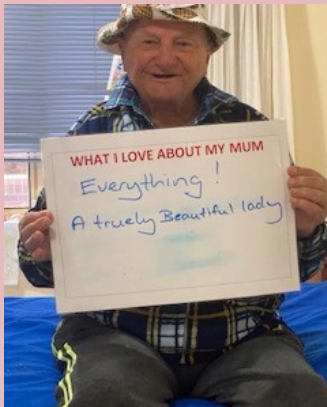 WHAT I LOVE ABOUT MY MUM
Everything!
A truely Beautiful lady